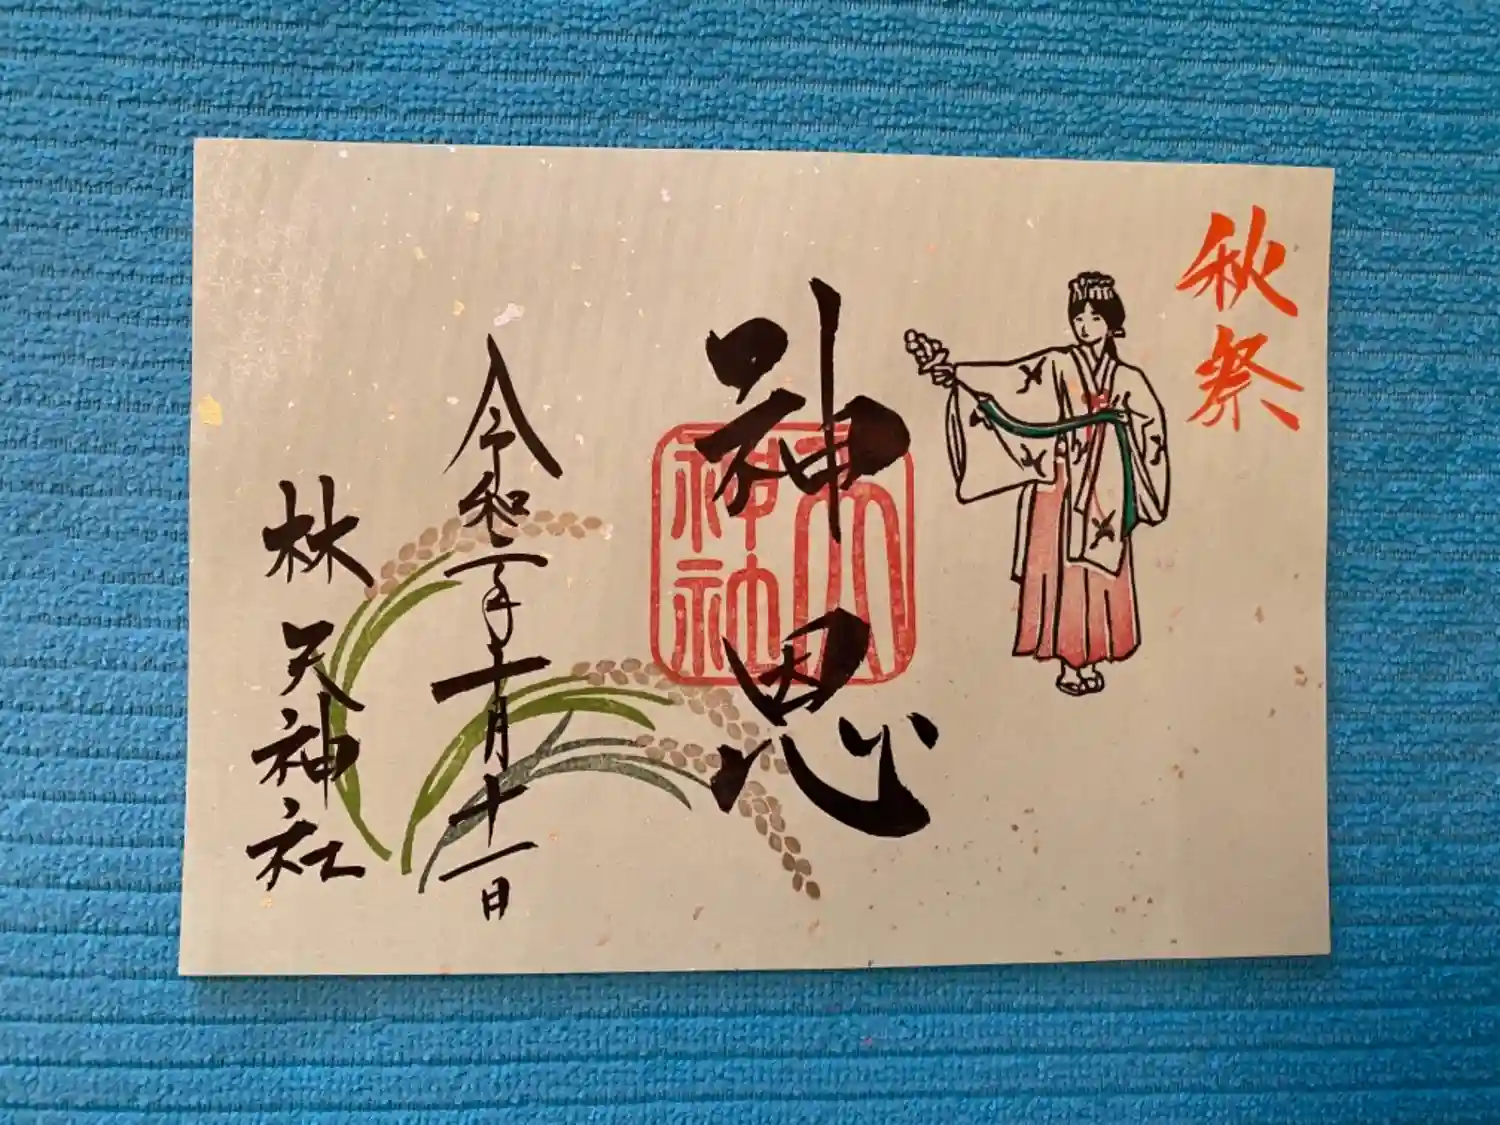 秋祭
神恩
天神社
令和二年十月十一日
林天神社